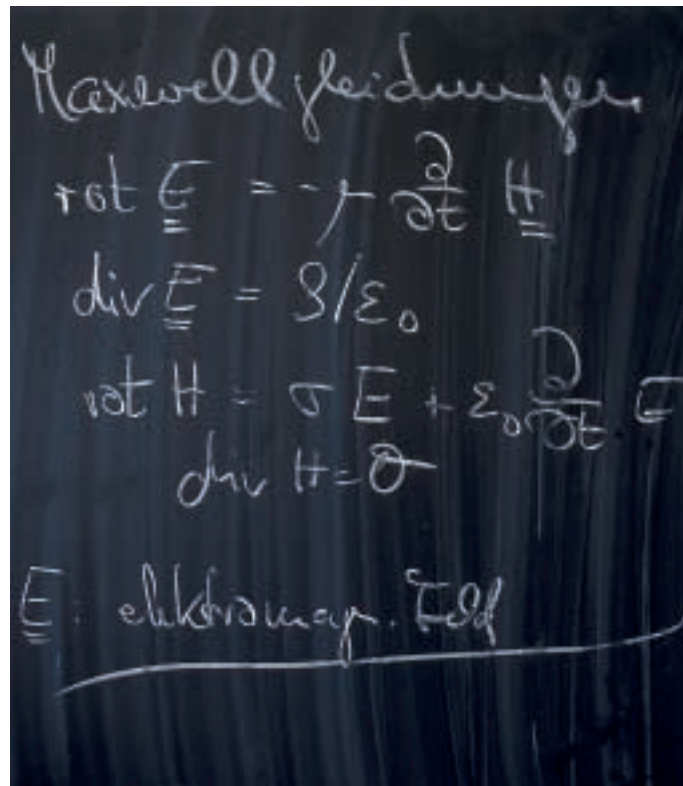 Maxwellgleichungen
rot E = -μ ∂/∂t H
div E = ρ/ε₀
rot H = σ E + ε₀ ∂/∂t E
div H = 0
E: elektromagn. Feld